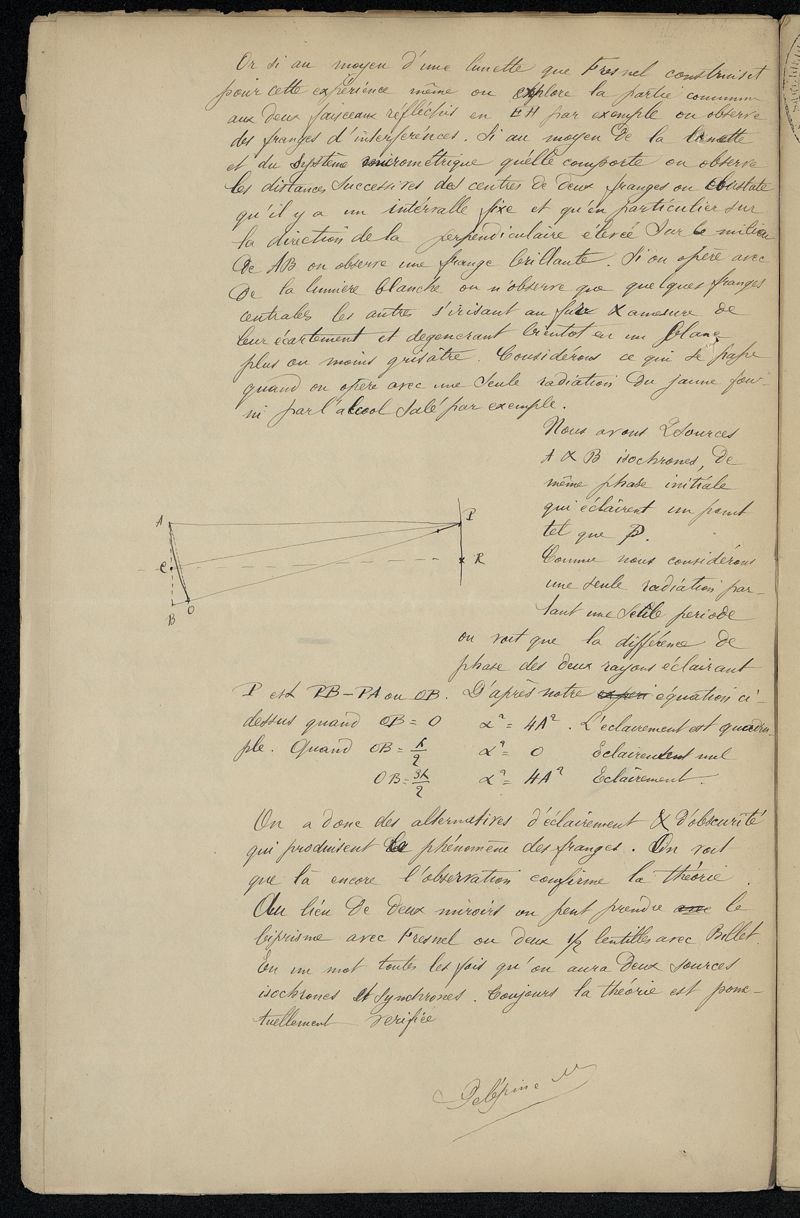 Or si au moyen d'une lunette que Fresnel construisit
pour cette expérience même on explore la partie commune
aux deux faisceaux réfléchis en EH par exemple on observe
des franges d'interférences. Si au moyen de la lunette
et du système micrométrique qu'elle comporte on observe
les distances successives des centres de deux franges on constate
qu'il y a un intervalle fixe et qu'en particulier sur
la direction de la perpendiculaire élevée sur le milieu
de AB on observe une frange brillante. Si on opère avec
de la lumière blanche on n'observe que quelques franges
centrales les autres s'irisant au fur & amesure de
leur écartement et degenerant bientot en un blanc
plus ou moins grisâtre. Considérons ce qui se passe
quand on opère avec une seule radiation du jaune four-
ni par l'alcool salé par exemple.
Nous avons 2 sources
A & B isochrones, de
même phase initiale
qui éclairent un point
tel que P.
Comme nous considérons
une seule radiation par-
tant une seule periode
on voit que la différence de
phase des deux rayons éclairant
A
P
C
R
B
O
P est PB-PA ou OB. D'après notre équation ci-
dessus quand OB = 0 α² = 4A². L'éclairement est quadru-
ple. Quand OB = λ/2 α² = 0 Eclairement nul
OB = 3λ/2 α² = 4A² Eclairement.
On a donc des alternatives d'éclairement & d'obscurité
qui produisent le phénomène des franges. On voit
que là encore l'observation confirme la théorie.
Au lieu de deux miroirs on peut prendre avec le
biprisme avec Fresnel ou deux 1/2 lentilles avec Billet.
En un mot toutes les fois qu'on aura deux sources
isochrones et synchrones. Toujours la théorie est ponc-
tuellement verifiée
Delépine M